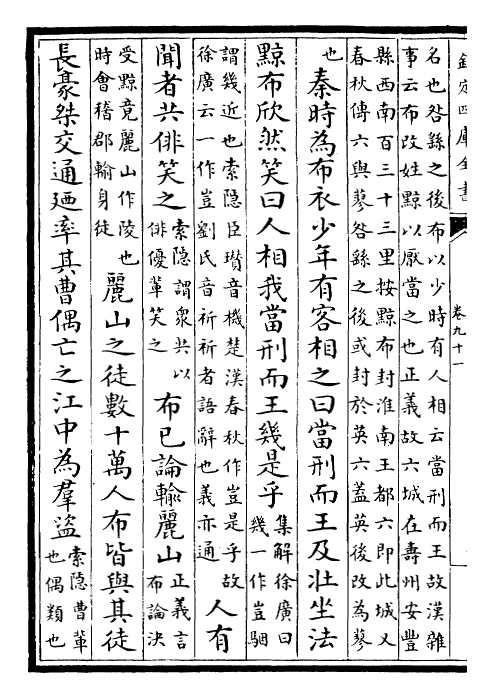 欽定四庫全書
卷九十一
名也咎繇之後布以少時有人相云當刑而王故漢雜
事云布改姓黥以厭當之也正義故六城在壽州安豐
縣西南百三十三里按黥布封淮南王都六即此城又
春秋傳六與蓼咎繇之後或封於英六蓋英後改為蓼
也
秦時為布衣少年有客相之曰當刑而王及壯坐法
黥布欣然笑曰人相我當刑而王幾是乎
集解徐廣曰
幾一作豈駰
謂幾近也索隐臣瓚音機楚漢春秋作豈是乎故
徐廣云一作豈劉氏音祈祈者語辭也義亦通
人有
聞者共俳笑之
索隐謂衆共以
俳優輩笑之
布已論輸麗山
正義言
布論決
受黥竟麗山作陵也
時會稽郡輸身徒
麗山之徒數十萬人布皆與其徒
長豪桀交通廼率其曹偶亡之江中為羣盜
索隐曹輩
也偶類也